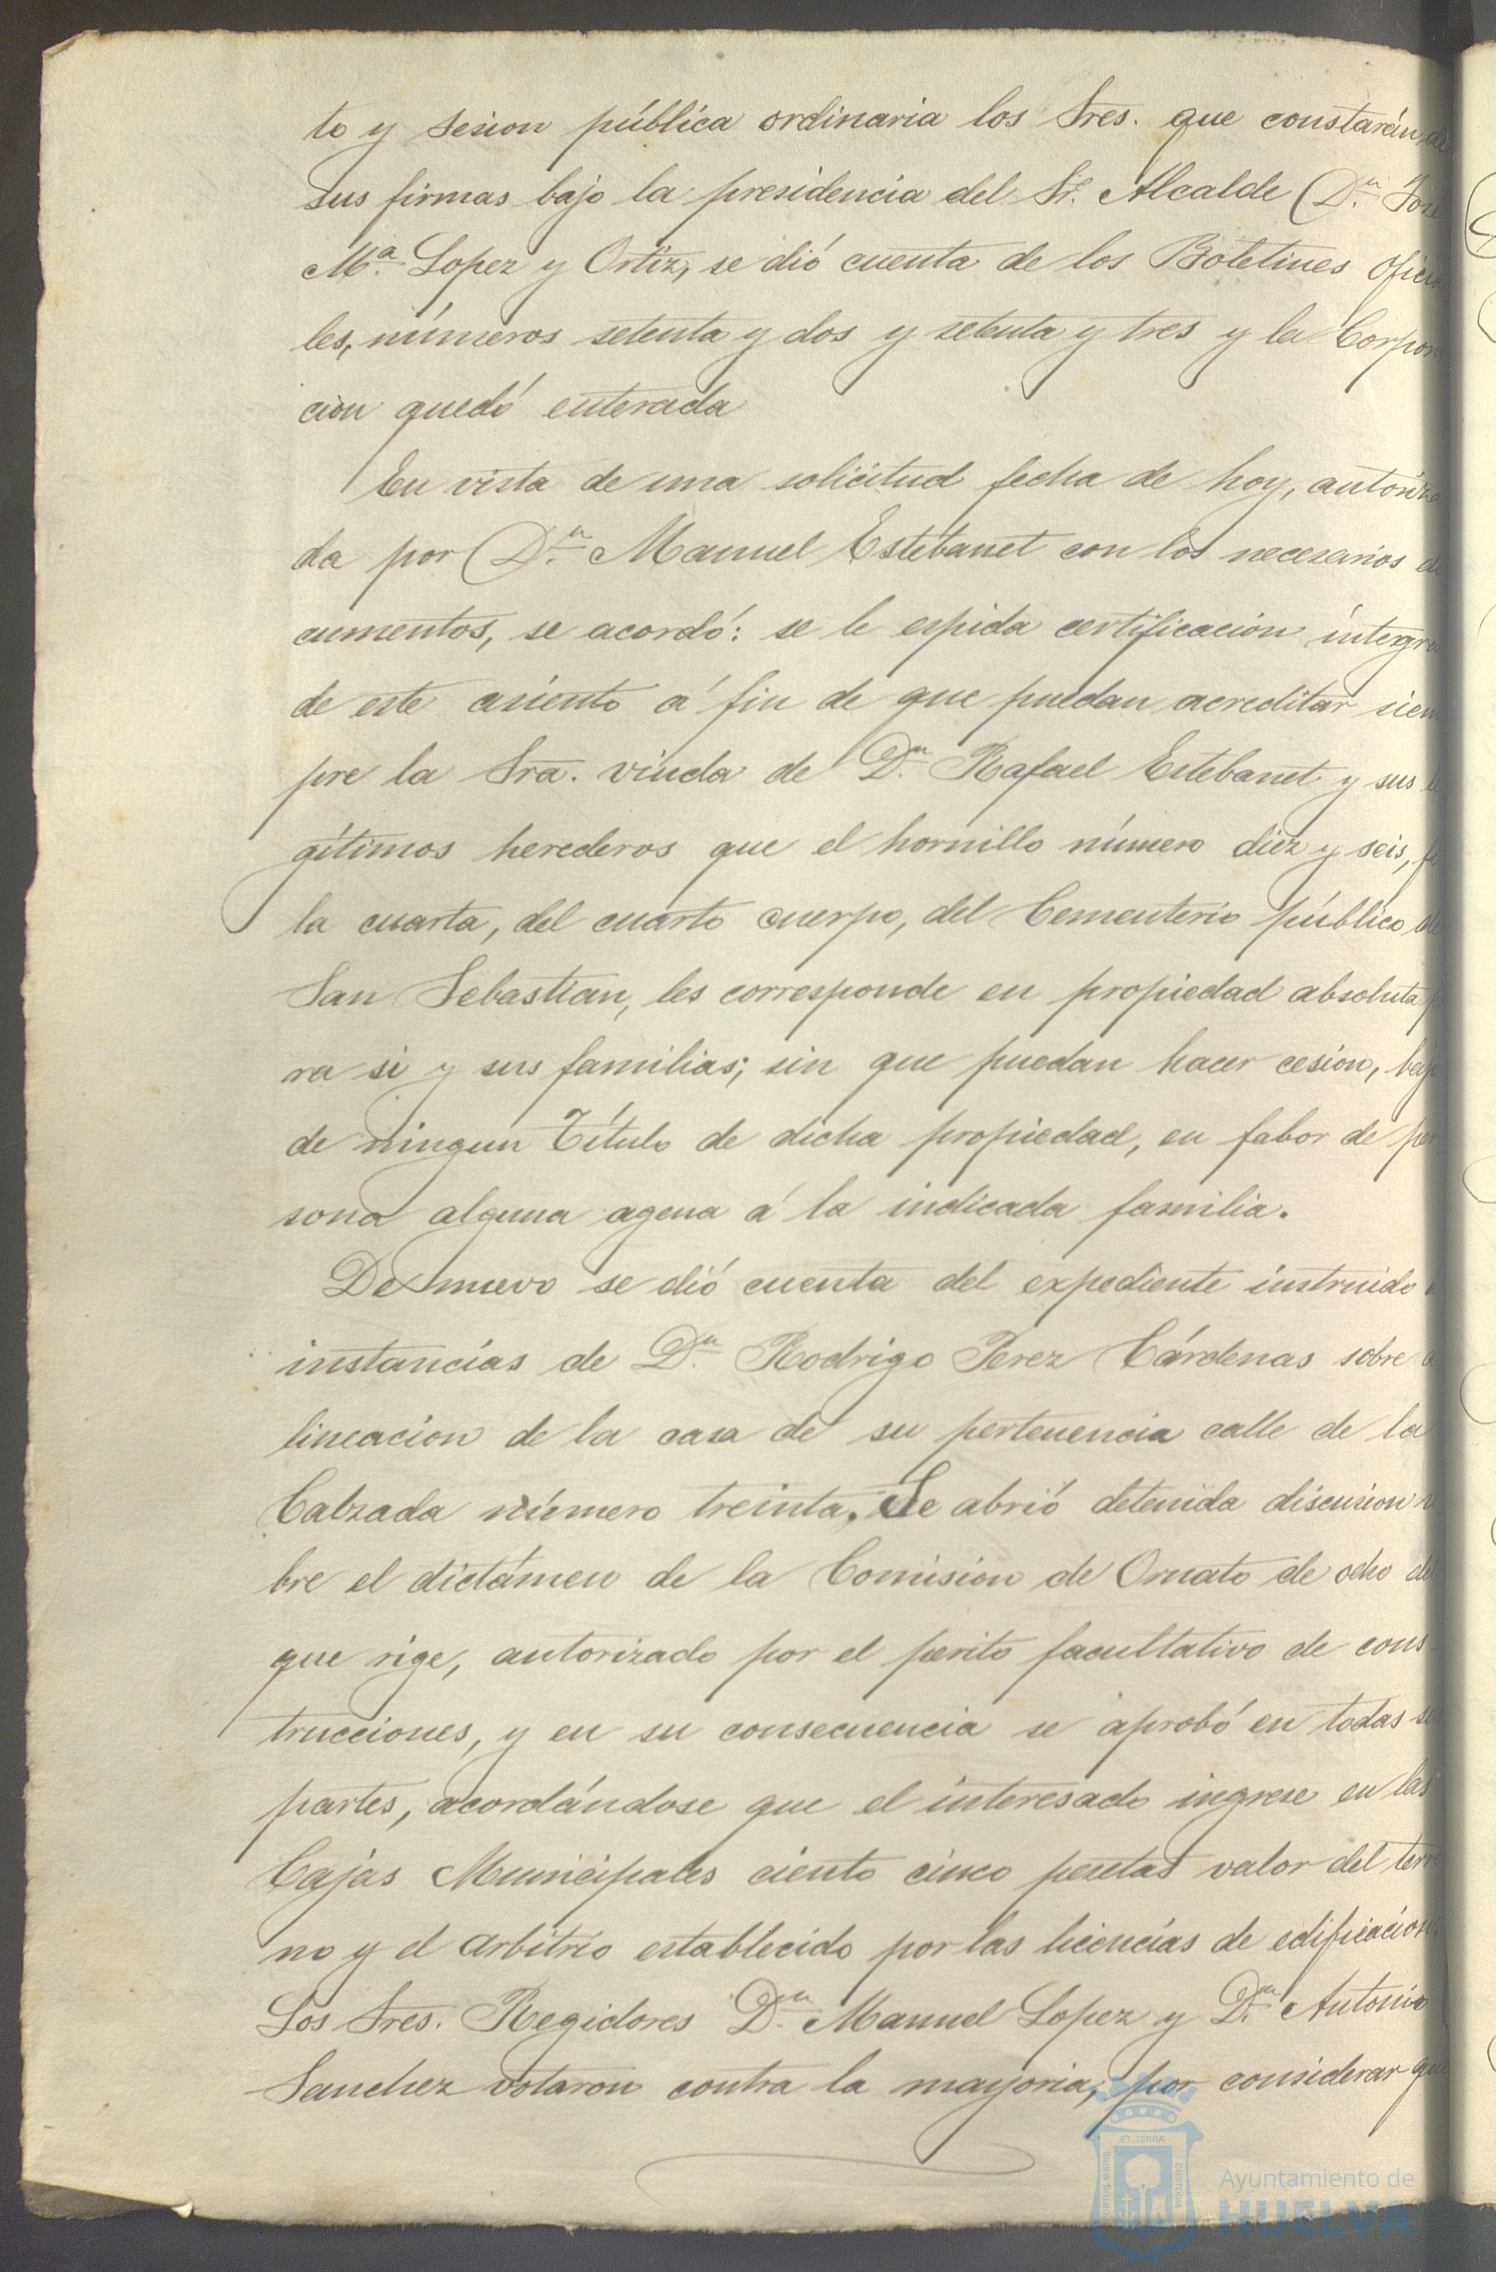 to y sesion pública ordinaria los Sres. que constarán de
sus firmas bajo la presidencia del Sr. Alcalde Dn. José
Mª. Lopez y Ortiz, se dió cuenta de los Boletines oficia
les, números setenta y dos y setenta y tres y la Corpora
cion quedó enterada
En vista de una solicitud fecha de hoy, autoriza
da por Dn. Manuel Estebanet con los necesarios do
cumentos, se acordó: se le espida certificacion integra
de este asiento á fin de que puedan acreditar siem
pre la Sra. viuda de Dn. Rafael Estebanet y sus le
gítimos herederos que el hornillo número diez y seis, fi
la cuarta, del cuarto cuerpo, del Cementerio público de
San Sebastian, les corresponde en propiedad absoluta pa
ra si y sus familias; sin que puedan hacer cesion, bajo
de ningun Título de dicha propiedad, en fabor de per
sona alguna agena á la indicada familia.
De nuevo se dió cuenta del expediente instruido á
instancias de Dn. Rodrigo Perez Cárdenas sobre a
lineacion de la casa de su pertenencia calle de la
Calzada número treinta. Se abrió detenida discusion so
bre el dictámen de la Comision de Ornato de ocho del
que rige, autorizado por el perito facultativo de cons-
trucciones, y en su consecuencia se aprobó en todas sus
partes, acordándose que el interesado ingrese en las
Cajas Municipales ciento cinco pesetas valor del terre
no y el arbitrio establecido por las licencias de edificacion.
Los Sres. Regidores Dn. Manuel Lopez y Dn. Antonio
Sanchez votaron contra la mayoria, por considerar que
ET TERRÆ
CUSTODIA
Ayuntamiento de
HUELVA